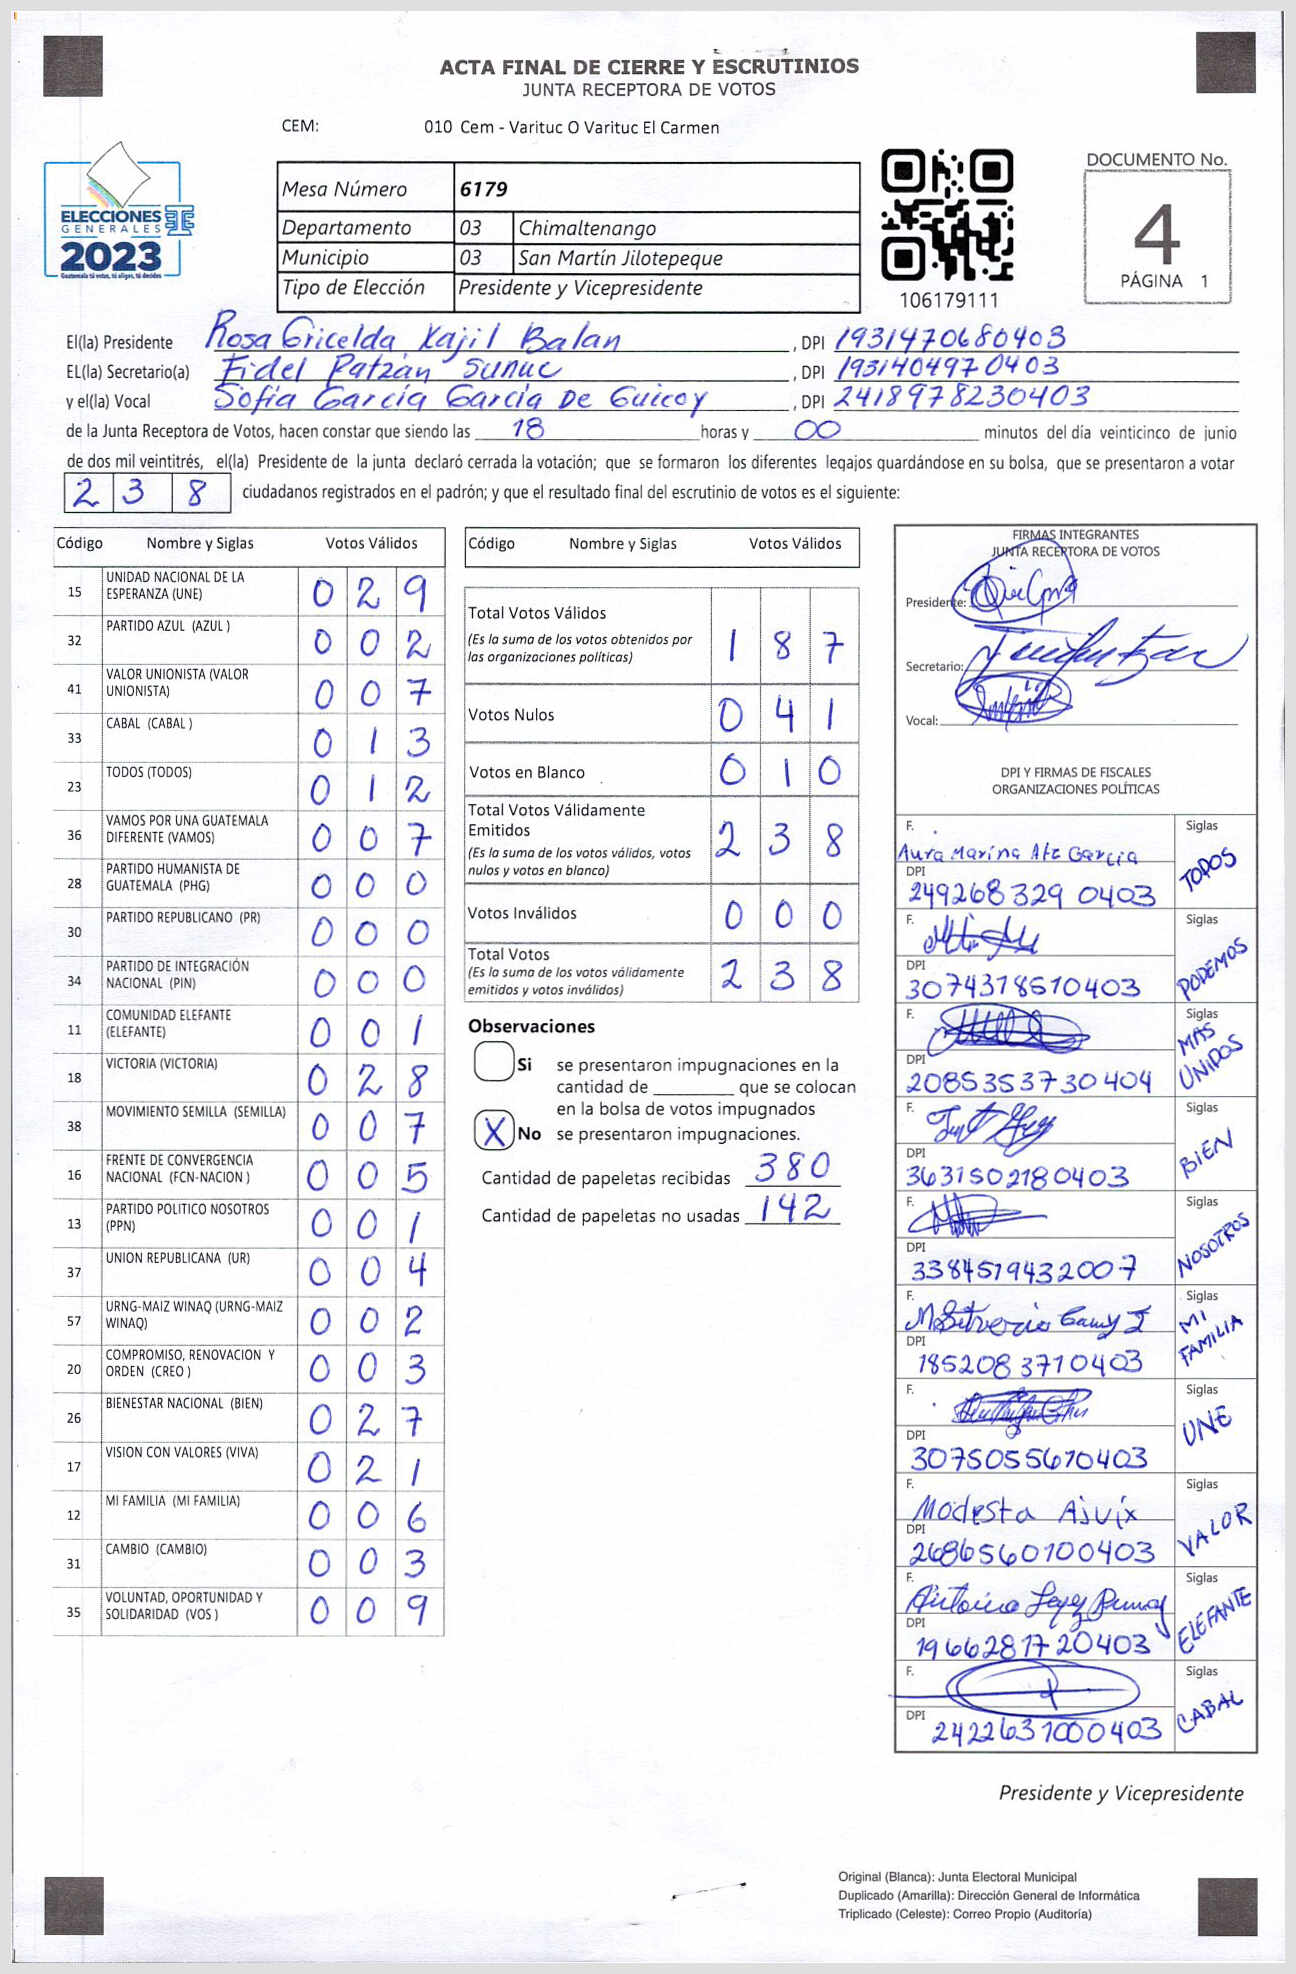 ACTA FINAL DE CIERRE Y ESCRUTINIOS
JUNTA RECEPTORA DE VOTOS
CEM: 010 Cem - Varituc O Varituc El Carmen
ELECCIONES
GENERALES
2023
Guatemala tú votas, tú eliges, tú decides
Mesa Número 6179
Departamento 03 Chimaltenango
Municipio 03 San Martín Jilotepeque
Tipo de Elección Presidente y Vicepresidente
106179111
DOCUMENTO No.
4
PÁGINA 1
El(la) Presidente Rosa Gricelda Xajil Balan , DPI 1931470680403
EL(la) Secretario(a) Fidel Patzán Sunuc , DPI 1931404970403
y el(la) Vocal Sofía García García De Guicoy , DPI 2418978230403
de la Junta Receptora de Votos, hacen constar que siendo las 18 horas y 00 minutos del día veinticinco de junio
de dos mil veintitrés, el(la) Presidente de la junta declaró cerrada la votación; que se formaron los diferentes legajos guardándose en su bolsa, que se presentaron a votar
2 3 8 ciudadanos registrados en el padrón; y que el resultado final del escrutinio de votos es el siguiente:
Código Nombre y Siglas Votos Válidos
15 UNIDAD NACIONAL DE LA
ESPERANZA (UNE) 0 2 9
32 PARTIDO AZUL (AZUL ) 0 0 2
41 VALOR UNIONISTA (VALOR
UNIONISTA) 0 0 7
33 CABAL (CABAL ) 0 1 3
23 TODOS (TODOS) 0 1 2
36 VAMOS POR UNA GUATEMALA
DIFERENTE (VAMOS) 0 0 7
28 PARTIDO HUMANISTA DE
GUATEMALA (PHG) 0 0 0
30 PARTIDO REPUBLICANO (PR) 0 0 0
34 PARTIDO DE INTEGRACIÓN
NACIONAL (PIN) 0 0 0
11 COMUNIDAD ELEFANTE
(ELEFANTE) 0 0 1
18 VICTORIA (VICTORIA) 0 2 8
38 MOVIMIENTO SEMILLA (SEMILLA) 0 0 7
16 FRENTE DE CONVERGENCIA
NACIONAL (FCN-NACION ) 0 0 5
13 PARTIDO POLITICO NOSOTROS
(PPN) 0 0 1
37 UNION REPUBLICANA (UR) 0 0 4
57 URNG-MAIZ WINAQ (URNG-MAIZ
WINAQ) 0 0 2
20 COMPROMISO, RENOVACION Y
ORDEN (CREO ) 0 0 3
26 BIENESTAR NACIONAL (BIEN) 0 2 7
17 VISION CON VALORES (VIVA) 0 2 1
12 MI FAMILIA (MI FAMILIA) 0 0 6
31 CAMBIO (CAMBIO) 0 0 3
35 VOLUNTAD, OPORTUNIDAD Y
SOLIDARIDAD (VOS ) 0 0 9
Código Nombre y Siglas Votos Válidos
Total Votos Válidos
(Es la suma de los votos obtenidos por
las organizaciones políticas) 1 8 7
Votos Nulos 0 4 1
Votos en Blanco 0 1 0
Total Votos Válidamente
Emitidos
(Es la suma de los votos válidos, votos
nulos y votos en blanco) 2 3 8
Votos Inválidos 0 0 0
Total Votos
(Es la suma de los votos válidamente
emitidos y votos inválidos) 2 3 8
Observaciones
Si se presentaron impugnaciones en la
cantidad de ________ que se colocan
en la bolsa de votos impugnados
X No se presentaron impugnaciones.
Cantidad de papeletas recibidas 380
Cantidad de papeletas no usadas 142
FIRMAS INTEGRANTES
JUNTA RECEPTORA DE VOTOS
Presidente:
Secretario:
Vocal:
DPI Y FIRMAS DE FISCALES
ORGANIZACIONES POLÍTICAS
F. Siglas
Aura Marina Atz Garcia TODOS
DPI
249268329 0403
F. Siglas
PODEMOS
DPI
3074318510403
F. Siglas
MAS UNIDOS
DPI
2085353730404
F. Siglas
BIEN
DPI
3631502180403
F. Siglas
NOSOTROS
DPI
3384519432007
F. Siglas
MI FAMILIA
DPI
1852083710403
F. Siglas
UNE
DPI
3075055610403
F. Siglas
Modesta Ajuix VALOR
DPI
2686560100403
F. Siglas
ELEFANTE
DPI
1966281720403
F. Siglas
CABAL
DPI
2422631000403
Presidente y Vicepresidente
Original (Blanca): Junta Electoral Municipal
Duplicado (Amarilla): Dirección General de Informática
Triplicado (Celeste): Correo Propio (Auditoría)